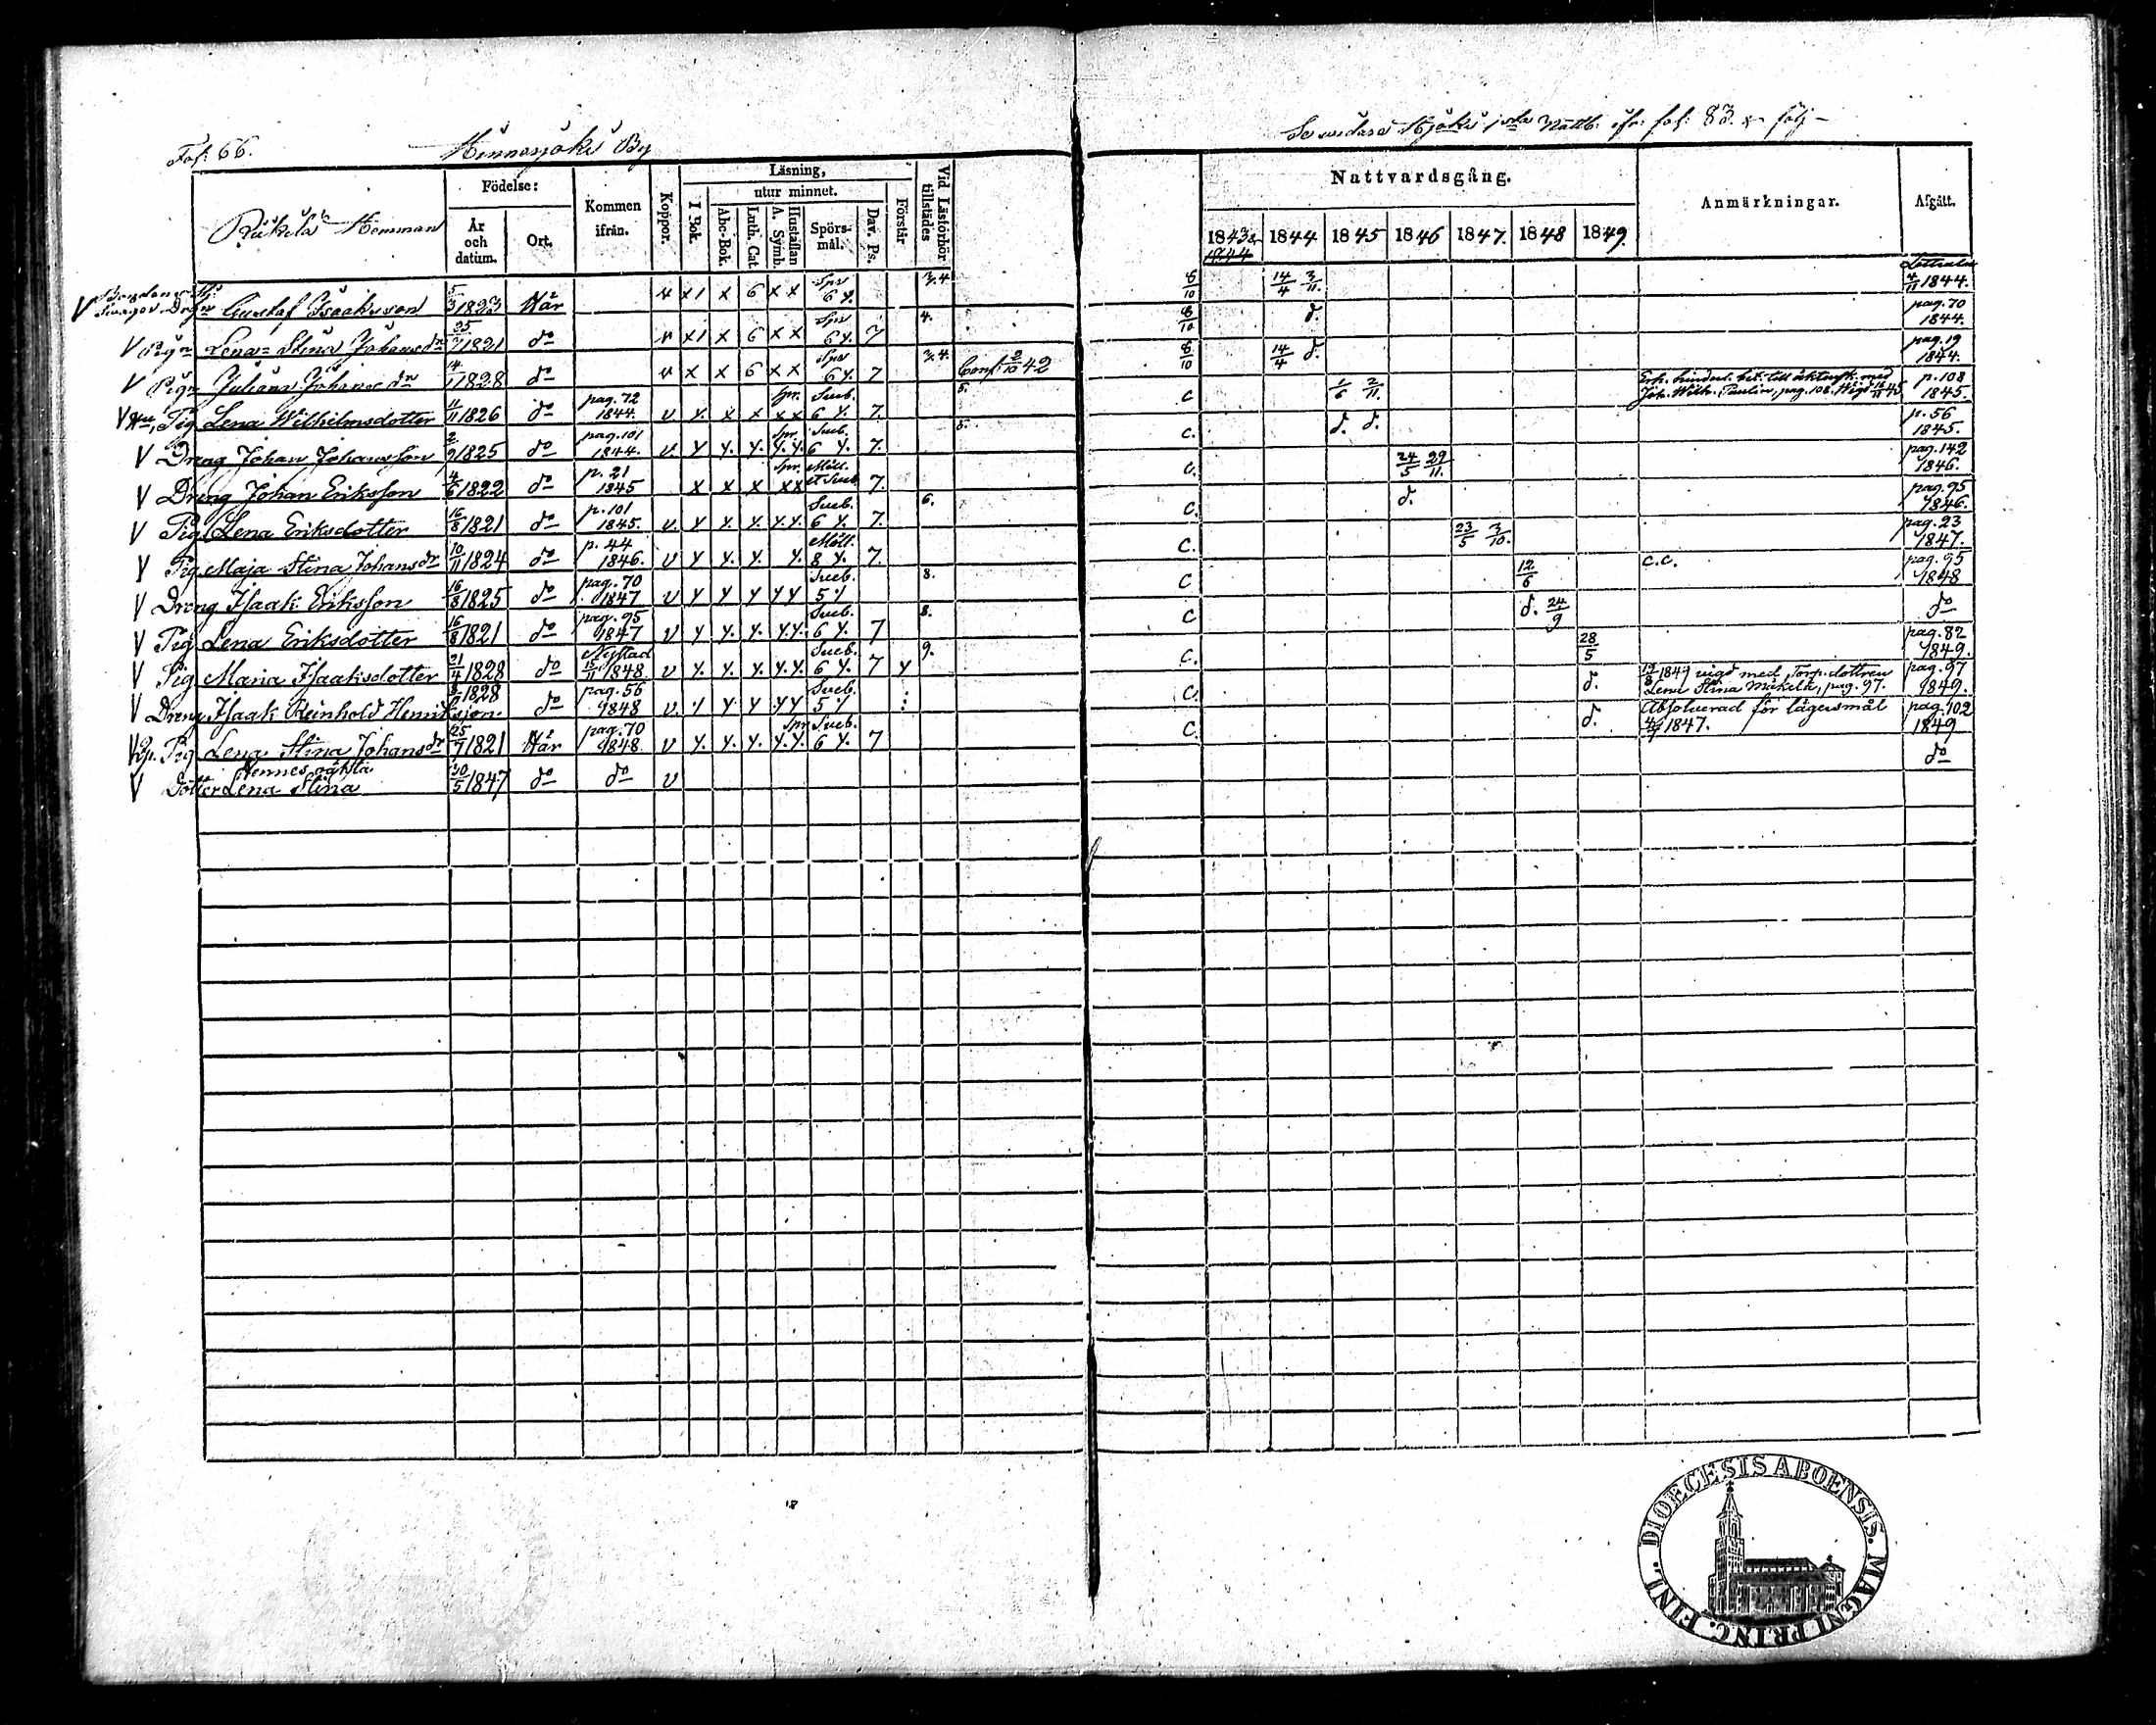 Fol: 66. Hinnerjoki By
fol: 83.
Födelse: Kommen ifrån. Koppor. Läsning, Vid Läsförhör tillstädes
År och datum. Ort. I Bok. utur minnet. Förstår
Abc-Bok. Luth. Cat. Hustaflan A. Symb. Spörsmål. Dav. Ps.
Hemman
Nattvardsgång. Anmärkningar. Afgått.
1843 1844 1845 1846 1847. 1848 1849.
Gustaf Isaaksson 5/3 1823 6 x x Spr 6 y. 3.4 8/10 14/4 3/11. 4/11 1844.
V Pign Lena Stina Johansdr 25/7 1821 do x 6 x x Spr 6 y. 7 4. 8/10 d. pag. 70 1844.
V Pign Juliana Johansdr 14/1 1828 do x x 6 x x Spr 6 y. 7 3.4. Conf. 2/10 42 8/10 14/4 d. pag. 19 1844.
Pig Lena Wilhelmsdotter 11/11 1826 do pag. 72 1844. v y. x x Spr. x x Sueb. 6 y. 7. 5. C 1/6 2/11. Erh. hindersl. bet. till äktensk. med Joh. Wilh. Paulin, pag. 108. p. 108 1845.
V Dreng Johan Johansson 2/9 1825 do pag. 101 1844. v y y. y. Spr. y. y. Sueb. 6 y. 7. 5. C. d. d. p. 56 1845.
V Dreng Johan Eriksson 4/6 1822 do p. 21 1845 x x x Spr. x x Möll. et Sueb. 7. C. 24/5 29/11. pag. 142 1846.
V Pig Lena Eriksdotter 16/8 1821 do p. 101 1845. v. y y. y. y. y. Sueb. 6 y. 7. 6. C. d. pag. 95 1846.
V Pig Maja Stina Johansdr 10/11 1824 do p. 44 1846. v y y. y. y. Möll. 8 y. 7. C. 23/5 3/10. pag. 23 1847.
V Dreng Isaak Eriksson 16/8 1825 do pag. 70 1847 v y y y y y Sueb. 5 8. C 12/6 c.c. pag. 95 1848
V Pig Lena Eriksdotter 16/8 1821 do pag. 95 1847 v y y. y. y. y. Sueb. 6 y. 7 8. C d. 24/9 do
V Pig Maria Isaaksdotter 21/4 1828 do Nystad 15/11 1848. v y. y. y. y. y. Sueb. 6 y. 7 y 9. C. 28/5 pag. 82 1849.
V Dreng Isaak Reinhold Henriksson. 1828 do pag. 56 1848 v. y y y y Sueb. 5 C. d. 1849 vigd med Torp. dottren Lena Stina Mäkelä, pag. 97. pag. 97 1849.
Pig Lena Stina Johansdr 25/7 1821 pag. 70 1848. v y. y. y. Spr y. y. Sueb. 6 y. 7 C. d. Absolverad för lägersmål 1847. pag. 102 1849
V Hennes oäkta Dotter Lena Stina 30/5 1847 do do v do
DIOECESIS ABOENSIS. MAGNI PRINC. FINL.